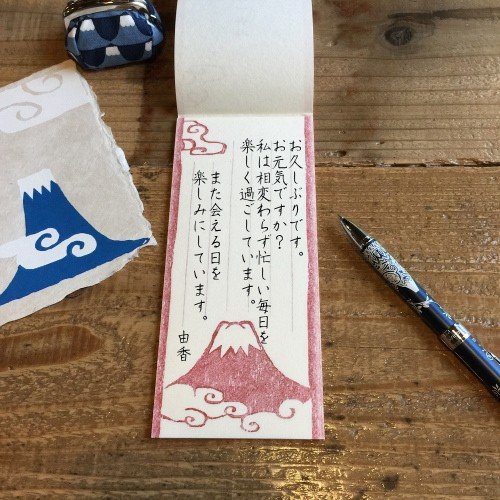 お久しぶりです。
お元気ですか？
私は相変わらず忙しい毎日を
楽しく過ごしています。
また会える日を
楽しみにしています。
由香